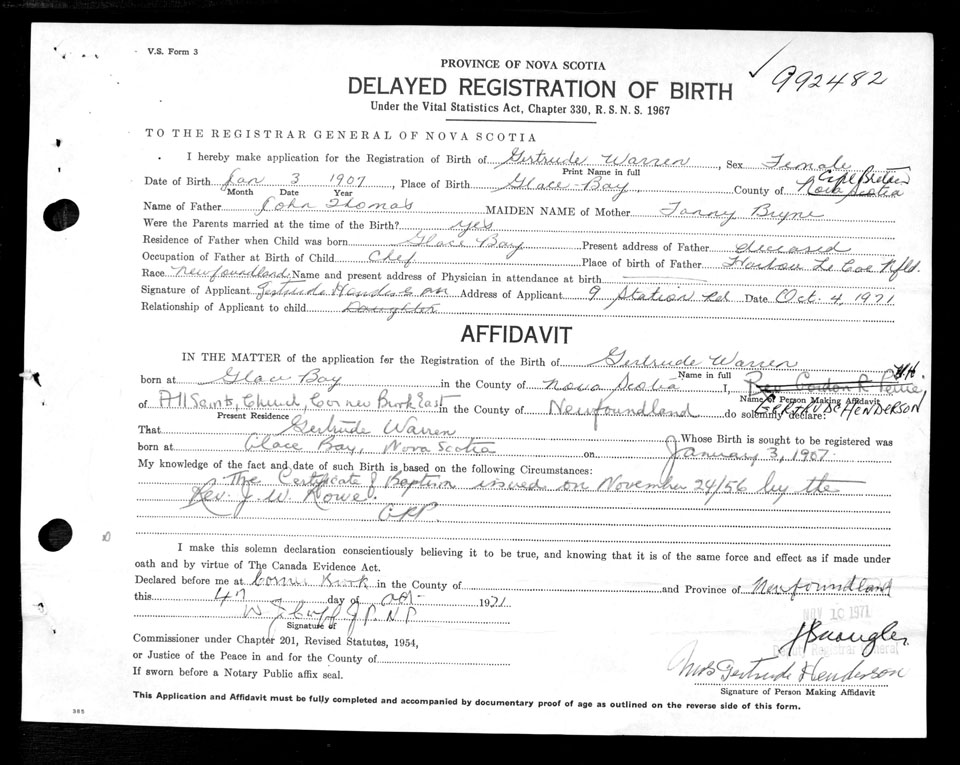 V.S. Form 3
992482
PROVINCE OF NOVA SCOTIA
DELAYED REGISTRATION OF BIRTH
Under the Vital Statistics Act, Chapter 330, R.S.N.S. 1967
TO THE REGISTRAR GENERAL OF NOVA SCOTIA
I hereby make application for the Registration of Birth of Gertrude Warren, Sex Female
Print Name in full
Cape Breton
Date of Birth Jan 3 1907, Place of Birth Glace Bay, County of Nova Scotia
Month Date Year
Name of Father John Thomas MAIDEN NAME of Mother Fanny Bryne
Were the Parents married at the time of the Birth? yes
Residence of Father when Child was born Glace Bay Present address of Father deceased
Occupation of Father at Birth of Child Chef Place of birth of Father Harbour Le Coe Nfld.
Race Newfoundland Name and present address of Physician in attendance at birth
Signature of Applicant Gertrude Henderson Address of Applicant 9 Station Rd Date Oct. 4, 1971
Relationship of Applicant to child Daughter
AFFIDAVIT
IN THE MATTER of the application for the Registration of the Birth of Gertrude Warren
Name in full
born at Glace Bay in the County of Nova Scotia I, Rev Gordon R
Name of Person Making Affidavit
GERTRUDE HENDERSON
of All Saints, Church, Corner Brook East in the County of Newfoundland do solemnly declare:
Present Residence
That Gertrude Warren Whose Birth is sought to be registered was
born at Glace Bay, Nova Scotia on January 3, 1907.
My knowledge of the fact and date of such Birth is based on the following Circumstances:
The Certificate of Baptism issued on November 24/56 by the
Rev. J. W. Rowe.
I make this solemn declaration conscientiously believing it to be true, and knowing that it is of the same force and effect as if made under
oath and by virtue of The Canada Evidence Act.
Declared before me at Corner Brook in the County of and Province of Newfoundland
this 4 day of Oct 1971
NOV 10 1971
Signature of
Commissioner under Chapter 201, Revised Statutes, 1954,
Deputy Registrar General
or Justice of the Peace in and for the County of
Mrs Gertrude Henderson
If sworn before a Notary Public affix seal.
Signature of Person Making Affidavit
This Application and Affidavit must be fully completed and accompanied by documentary proof of age as outlined on the reverse side of this form.
385